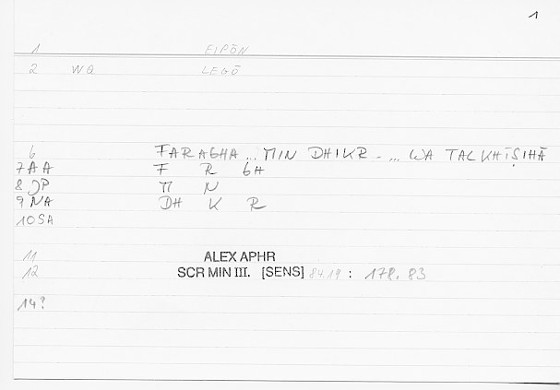 1
1 EIPŌN
2 WQ LEGŌ
6 FARAGHA ... MIN DHIKR - ... WA TALKHĪṢIHĀ
7 AA F R GH
8 JP M N
9 NA DH K R
10 SA
11 ALEX APHR
12 SCR MIN III. [SENS] 84.19 : 178.83
14?